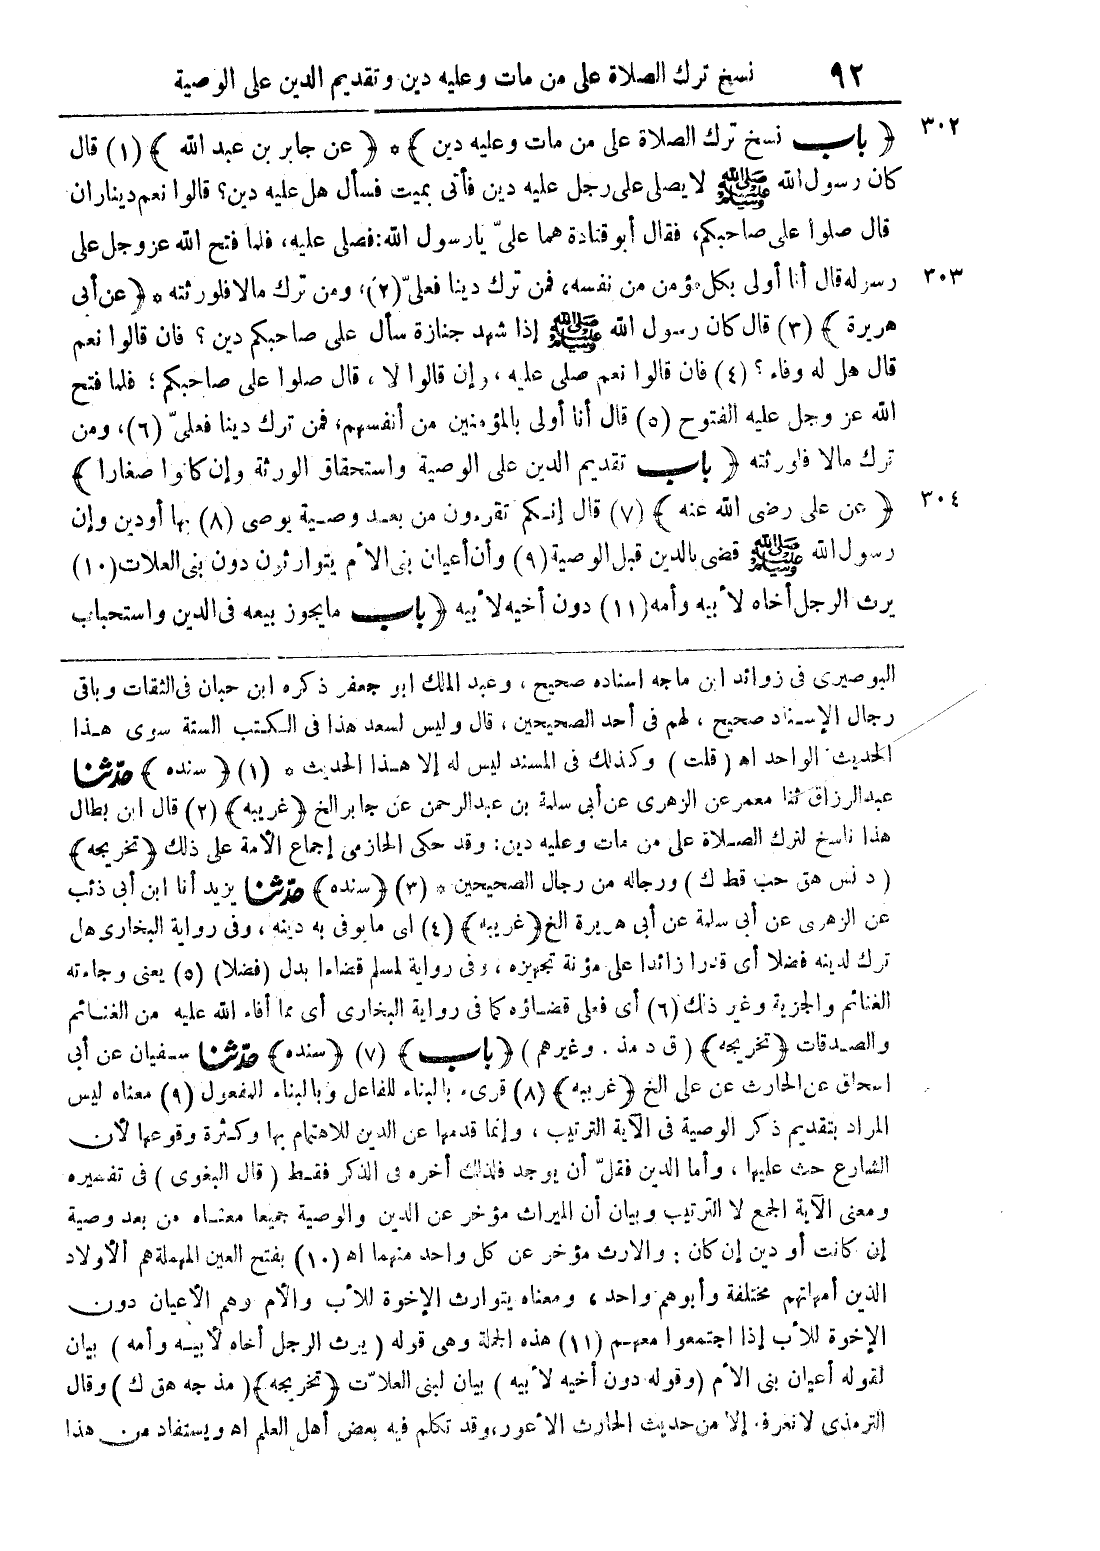 ٩٢ نسخ ترك الصلاة على من مات وعليه دين وتقديم الدين على الوصية
٣٠٢ ﴿ باب نسخ ترك الصلاة على من مات وعليه دين ﴾ * ﴿ عن جابر بن عبد الله ﴾ (١) قال
كان رسول الله ﷺ لا يصلى على رجل عليه دين فأتى بميت فسأل هل عليه دين؟ قالوا نعم ديناران
قال صلوا على صاحبكم، فقال أبو قتادة هما علىّ يارسول الله: فصلى عليه، فلما فتح الله عز وجل على
٣٠٣ رسوله قال أنا أولى بكل مؤمن من نفسه، فمن ترك دينا فعلىّ (٢)، ومن ترك مالا فلورثته * ﴿ عن أبى
هريرة ﴾ (٣) قال كان رسول الله ﷺ إذا شهد جنازة سأل على صاحبكم دين ؟ فان قالوا نعم
قال هل له وفاء ؟ (٤) فان قالوا نعم صلى عليه ، وإن قالوا لا ، قال صلوا على صاحبكم ؛ فلما فتح
الله عز وجل عليه الفتوح (٥) قال أنا أولى بالمؤمنين من أنفسهم، فمن ترك دينا فعلىّ (٦)، ومن
ترك مالا فلورثته ﴿ باب تقديم الدين على الوصية واستحقاق الورثة وإن كانوا صغارا ﴾
٣٠٤ ﴿ عن على رضى الله عنه ﴾ (٧) قال إنكم تقرءون من بعد وصية يوصى (٨) بها أودين وإن
رسول الله ﷺ قضى بالدين قبل الوصية (٩) وأن أعيان بنى الأم يتوارثون دون بنى العلات (١٠)
يرث الرجل أخاه لأبيه وأمه (١١) دون أخيه لأبيه ﴿ باب مايجوز بيعه فى الدين واستحباب
البوصيرى فى زوائد ابن ماجه اسناده صحيح ، وعبد الملك ابو جعفر ذكره ابن حبان فى الثقات وباقى
رجال الإسناد صحيح ، لهم فى أحد الصحيحين ، قال وليس لسعد هذا فى الكتب الستة سوى هذا
الحديث الواحد اه ( قلت ) وكذلك فى المسند ليس له إلا هذا الحديث * (١) ﴿ سنده ﴾ حدّثنا
عبد الرزاق ثنا معمر عن الزهرى عن أبى سلمة بن عبد الرحمن عن جابر الخ ﴿ غريبه ﴾ (٢) قال ابن بطال
هذا ناسخ لترك الصلاة على من مات وعليه دين: وقد حكى الحازمى إجماع الأمة على ذلك ﴿ تخريجه ﴾
( د نس هق حب قط ك ) ورجاله من رجال الصحيحين * (٣) ﴿ سنده ﴾ حدّثنا يزيد أنا ابن أبى ذئب
عن الزهرى عن أبى سلمة عن أبى هريرة الخ ﴿ غريبه ﴾ (٤) اى مايوفى به دينه ، وفى رواية البخارى هل
ترك لدينه فضلا أى قدرا زائدا على مؤنة تجهيزه ، وفى رواية لمسلم قضاءا بدل (فضلا) (٥) يعنى وجاءته
الغنائم والجزية وغير ذلك (٦) أى فعلى قضاؤه كما فى رواية البخارى أى مما أفاء الله عليه من الغنائم
والصدقات ﴿ تخريجه ﴾ ( ق د مذ . وغيرهم ) ﴿ باب ﴾ (٧) ﴿ سنده ﴾ حدّثنا سفيان عن أبى
اسحاق عن الحارث عن على الخ ﴿ غريبه ﴾ (٨) قرىء بالبناء للفاعل وبالبناء للمفعول (٩) معناه ليس
المراد بتقديم ذكر الوصية فى الآية الترتيب ، وإنما قدمها عن الدين للاهتمام بها وكثرة وقوعها لأن
الشارع حث عليها ، وأما الدين فقلّ أن يوجد فلذلك أخره فى الذكر فقط ( قال البغوى ) فى تفسيره
ومعنى الآية الجمع لا الترتيب وبيان أن الميراث مؤخر عن الدين والوصية جميعا معناه من بعد وصية
إن كانت أو دين إن كان : والارث مؤخر عن كل واحد منهما اه (١٠) بفتح العين المهملة هم الأولاد
الذين أمهاتهم مختلفة وأبوهم واحد ، ومعناه يتوارث الإخوة للأب والأم وهم الأعيان دون
الإخوة للأب إذا اجتمعوا معهم (١١) هذه الجملة وهى قوله ( يرث الرجل أخاه لأبيه وأمه ) بيان
لقوله أعيان بنى الأم (وقوله دون أخيه لأبيه ) بيان لبنى العلاّت ﴿ تخريجه ﴾ ( مذ جه هق ك ) وقال
الترمذى لانعرفه إلا من حديث الحارث الأعور، وقد تكلم فيه بعض أهل العلم اه ويستفاد من هذا